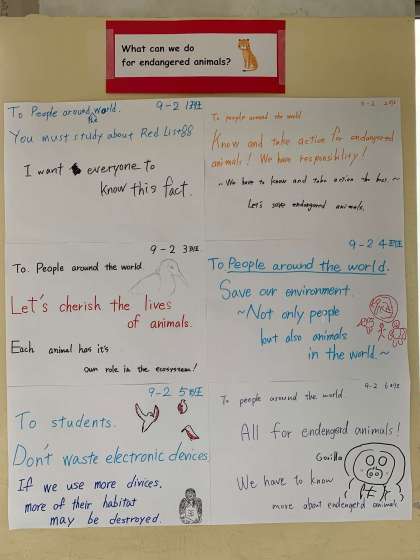 What can we do
for endangered animals?
To People around the world.
9-2 1班
You must study about Red List!!
I want everyone to
know this fact.
9-2 2班
To people around the world.
Know and take action for endangered
animals! We have responsibility!
~We have to know and take action the
Let's save endangered animals.
9-2 3班
To. People around the world.
Let's cherish the lives
of animals.
Each animal has it's
own role in the ecosystem!
9-2 4班
To People around the world.
Save our environment.
~Not only people
but also animals
in the world.~
9-2 5班
To students.
Don't waste electronic devices.
If we use more divices,
more of their habitat
may be destroyed.
9-2 6班
To people around the world.
All for endengerd animals!
Gorilla
We have to know
more about endengerd animals.